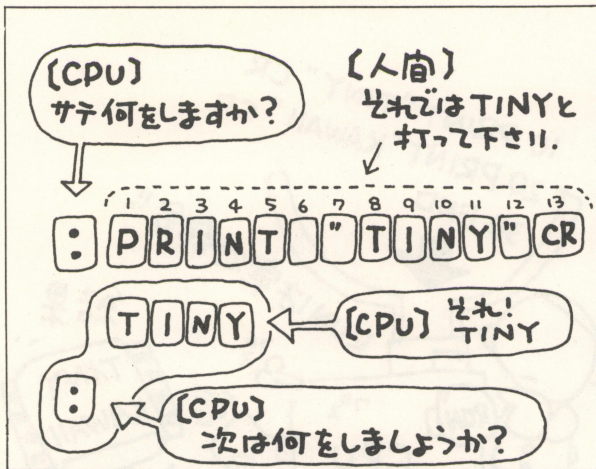 [CPU]
サテ何をしますか?
[人間]
それではTINYと
打って下さい.
1 2 3 4 5 6 7 8 9 10 11 12 13
: PRINT "TINY" CR
TINY
[CPU] それ!
TINY
:
[CPU]
次は何をしましょうか?